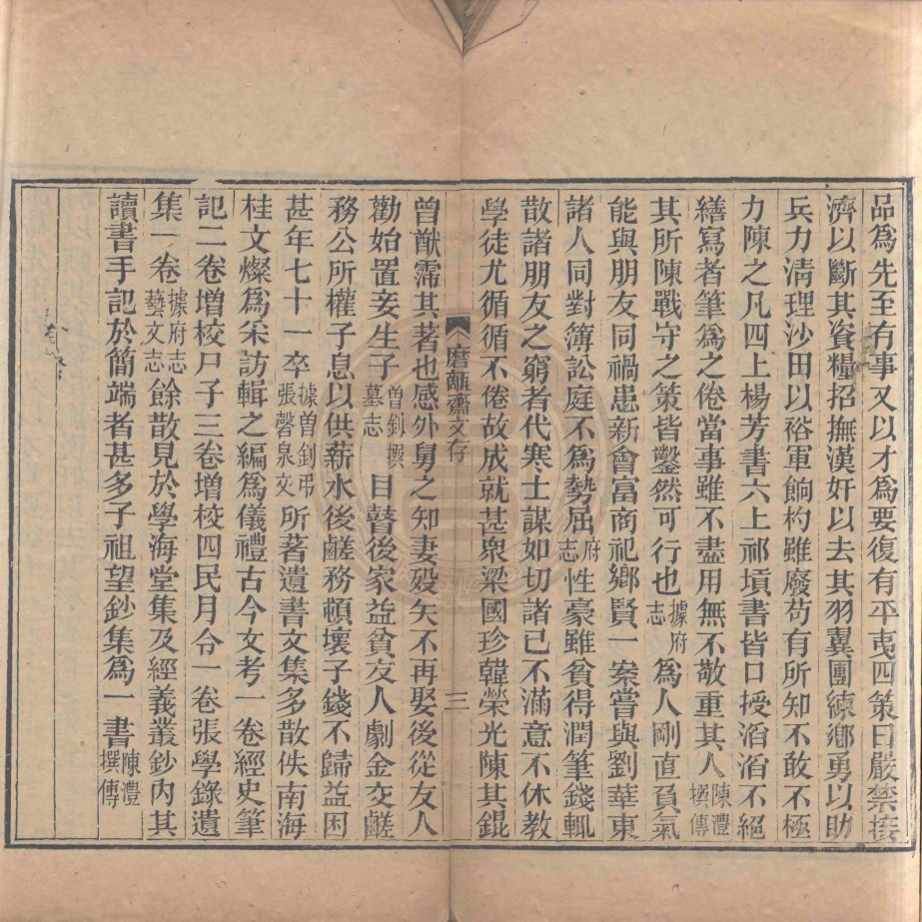 品爲先至有事又以才爲要復有平夷四策曰嚴禁接
濟以斷其資糧招撫漢奸以去其羽翼團練鄉勇以助
兵力清理沙田以裕軍餉杓雖廢苟有所知不敢不極
力陳之凡四上楊芳書六上祁墳書皆口授滔滔不絕
繕寫者筆爲之倦當事雖不盡用無不敬重其人陳澧撰傳
其所陳戰守之策皆鑿然可行也據府志爲人剛直負氣
能與朋友同禍患新會富商祀鄉賢一案嘗與劉華東
諸人同對簿訟庭不爲勢屈府志性豪雖貧得潤筆錢輒
散諸朋友之窮者代寒士謀如切諸已不滿意不休教
學徒尤循循不倦故成就甚衆梁國珍韓榮光陳其錕
磨甋齋文存
三
曾猷霈其著也感外舅之知妻歿矢不再娶後從友人
勸始置妾生子曾釗撰墓志目瞽後家益貧友人劇金交鹺
務公所權子息以供薪水後鹺務頓壞子錢不歸益困
甚年七十一卒據曾釗弔張磬泉文所著遺書文集多散佚南海
桂文燦爲采訪輯之編爲儀禮古今文考一卷經史筆
記二卷增校尸子三卷增校四民月令一卷張學錄遺
集一卷據府志藝文志餘散見於學海堂集及經義叢鈔內其
讀書手記於簡端者甚多子祖望鈔集爲一書陳澧撰傳